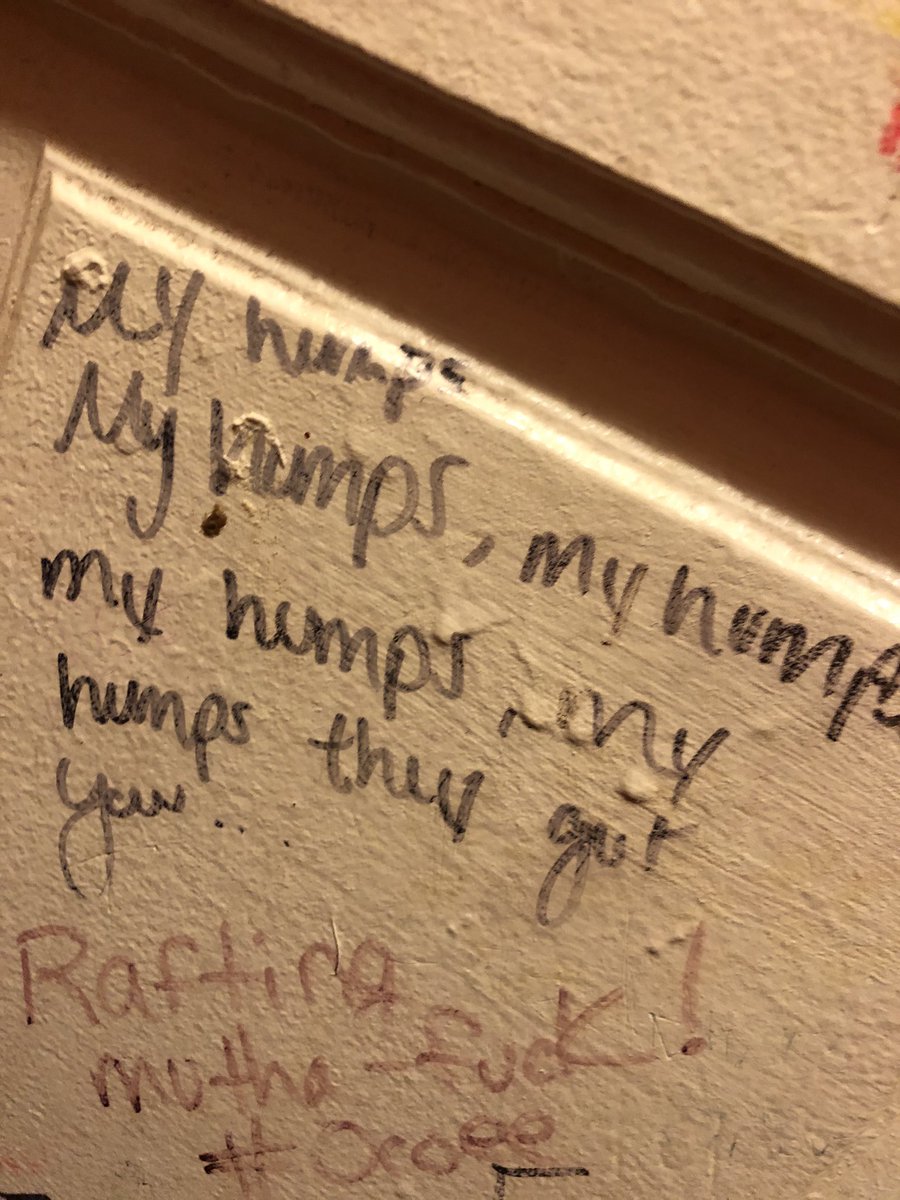 My humps
My humps, my humps
my humps, my
humps they got
you...
Rafting
mutha-fuck!